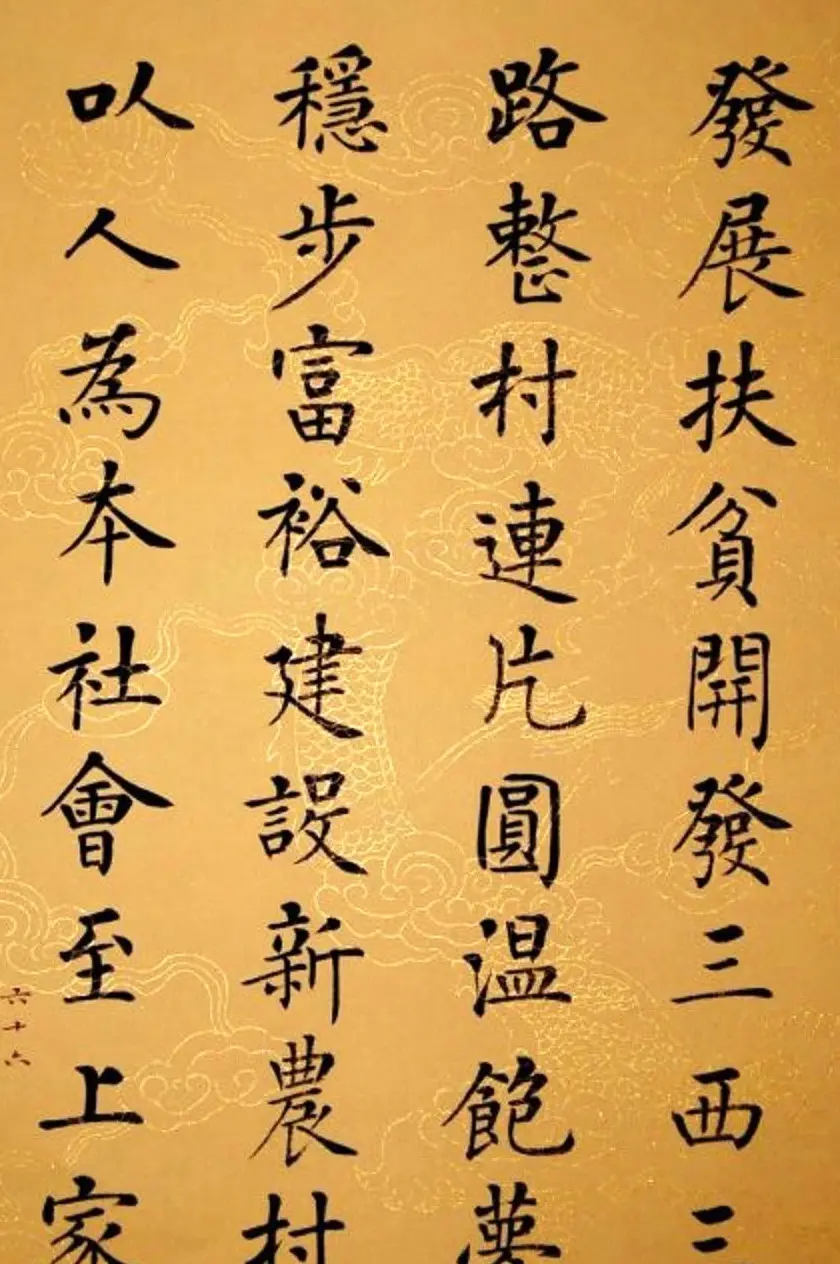 發展扶貧開發三西三
路整村連片圓温飽夢
穩步富裕建設新農村
以人為本社會至上家
六十六